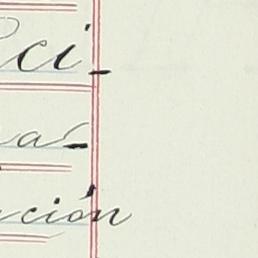 ci-
a-
ción